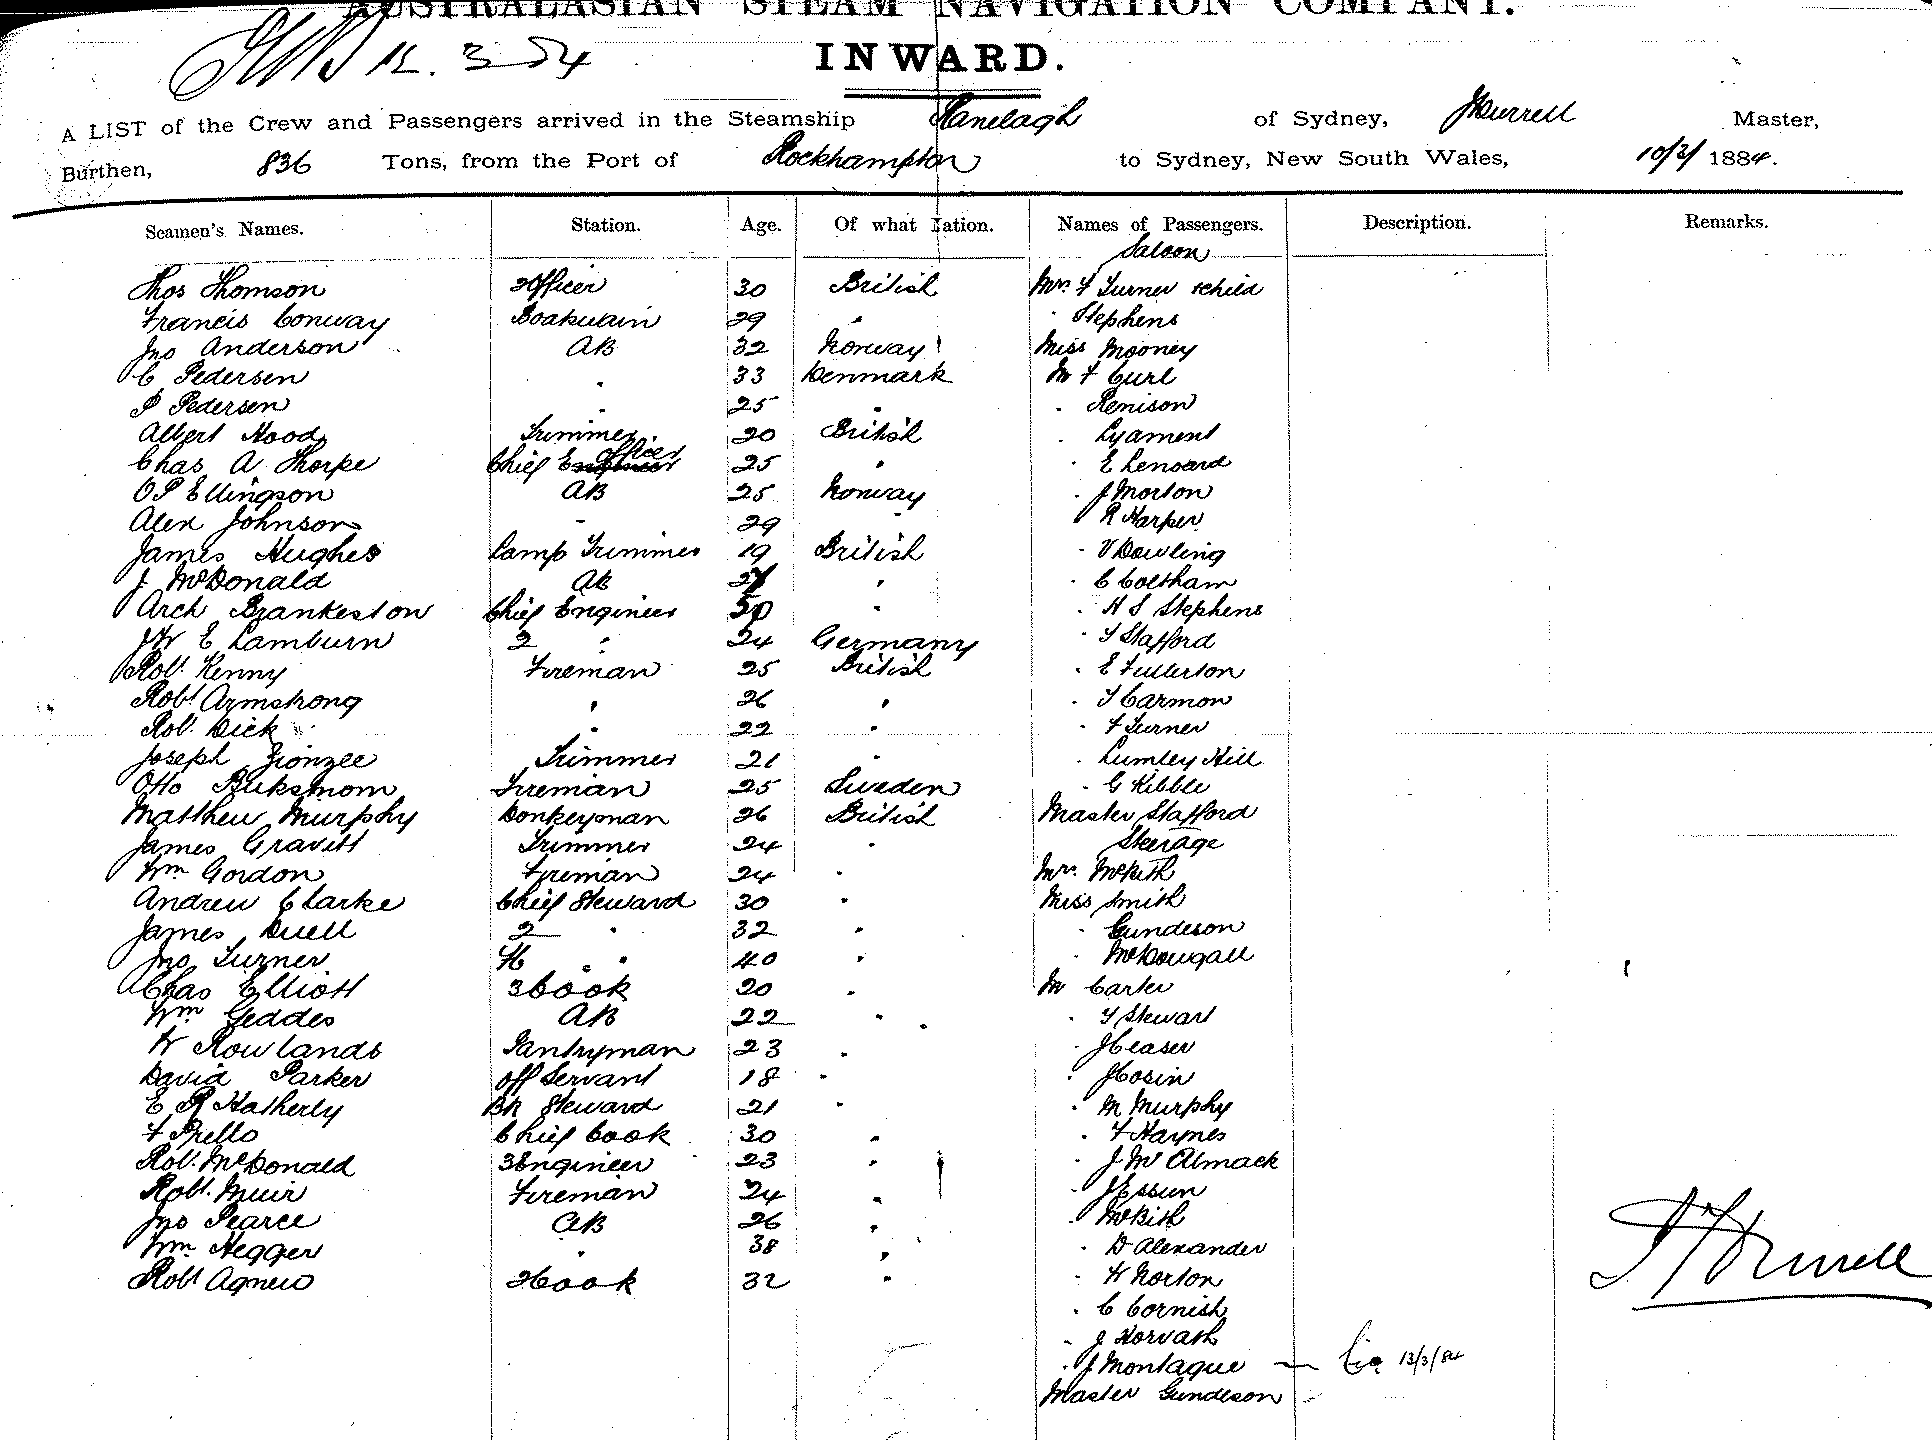 AUSTRALASIAN STEAM NAVIGATION COMPANY.
12.3.84
INWARD.
A LIST of the Crew and Passengers arrived in the Steamship Ranelagh of Sydney, Master,
Burthen, 836 Tons, from the Port of Rockhampton to Sydney, New South Wales, 10/3/ 1884.
Seamen's Names. Station. Age. Of what Nation. Names of Passengers. Description. Remarks.
Saloon
Thos Thomson 2 Officer 30 British Mrs F Turner & child
Francis Conway Boatswain 29 " " Stephens
Jno Anderson AB 32 Norway Miss Mooney
C Pedersen " 33 Denmark Mr F Curl
P Pedersen " 25 " " Renison
Albert Hood Trimmer 20 British " Lyament
Chas A Thorpe Chief Officer 25 " " E Lenoard
O P Ellingson AB 25 Norway " J Morton
Alex Johnson " 29 " " R Harper
James Hughes Lamp Trimmer 19 British " V Dowling
J McDonald AB " " C Coltham
Arch Brankeston Chief Engineer 50 " " H S Stephens
J W E Lamburn 2 " 24 Germany " T Stafford
Robt Kenny Fireman 25 British " E Fullerton
Robt Armstrong " 26 " " T Carmon
Robt Dick " 22 " " F Turner
Joseph Trimmer 21 " " Lumley Hill
Otto Fireman 25 Sweden " G Kibble
Matthew Murphy Donkeyman 26 British Master Stafford
James Gravitt Trimmer 24 " Steerage
Wm Gordon Fireman 24 " Mrs McKith
Andrew Clarke Chief Steward 30 " Miss Smith
James Duell 2 " 32 " " Gundeson
Jno Turner " " 40 " " McDougall
Chas Elliott 3 Cook 20 " Mr Carter
Wm Geddes AB 22 " " T Stewart
W Rowlands Pantryman 23 " " J Ceaser
David Parker Off Servant 18 " " J Cosin
E R Hatherly BR Steward 21 " " M Murphy
F Prello Chief Cook 30 " " F Haynes
Robt McDonald 3 Engineer 23 " " J McAlmack
Robt Muir Fireman 24 " " J Essen
Jno Pearce AB 26 " " McKith
Wm Hegger " 38 " " D Alexander
Robt Agnew 2 Cook 32 " " W Norton
" C Cornish
" J Horvath
" J Montague — 13/3/84
Master Gundeson